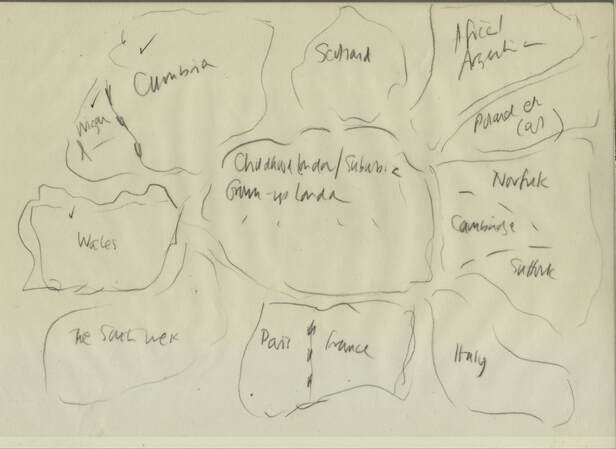 Cumbria
Scotland
Africa/
Argentina
Poland etc
Wigan
Childhood London/Suburbia
Grown-up London
Norfolk
Cambridge
Suffolk
Wales
The South West
Paris
France
Italy